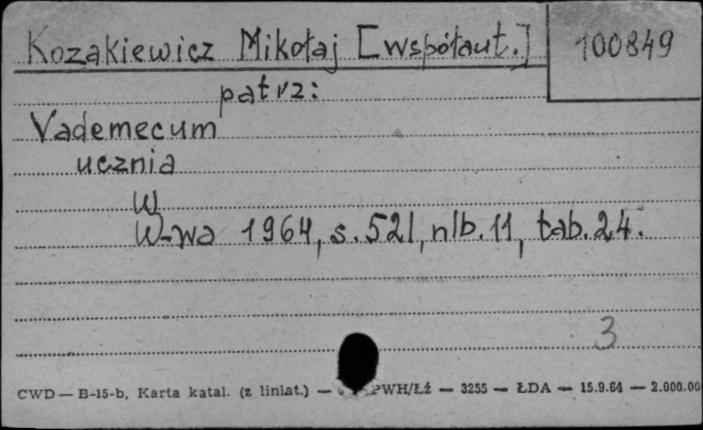 Kozakiewicz Mikołaj [współaut.] 100849
patrz:
Vademecum
ucznia
W
W-wa 1964, s. 521, nlb. 11, tab. 24.
3
CWD — B-15-b, Karta katal. (z liniat.) — PWH/Łź — 3255 — ŁDA — 15.9.64 — 2.000.00